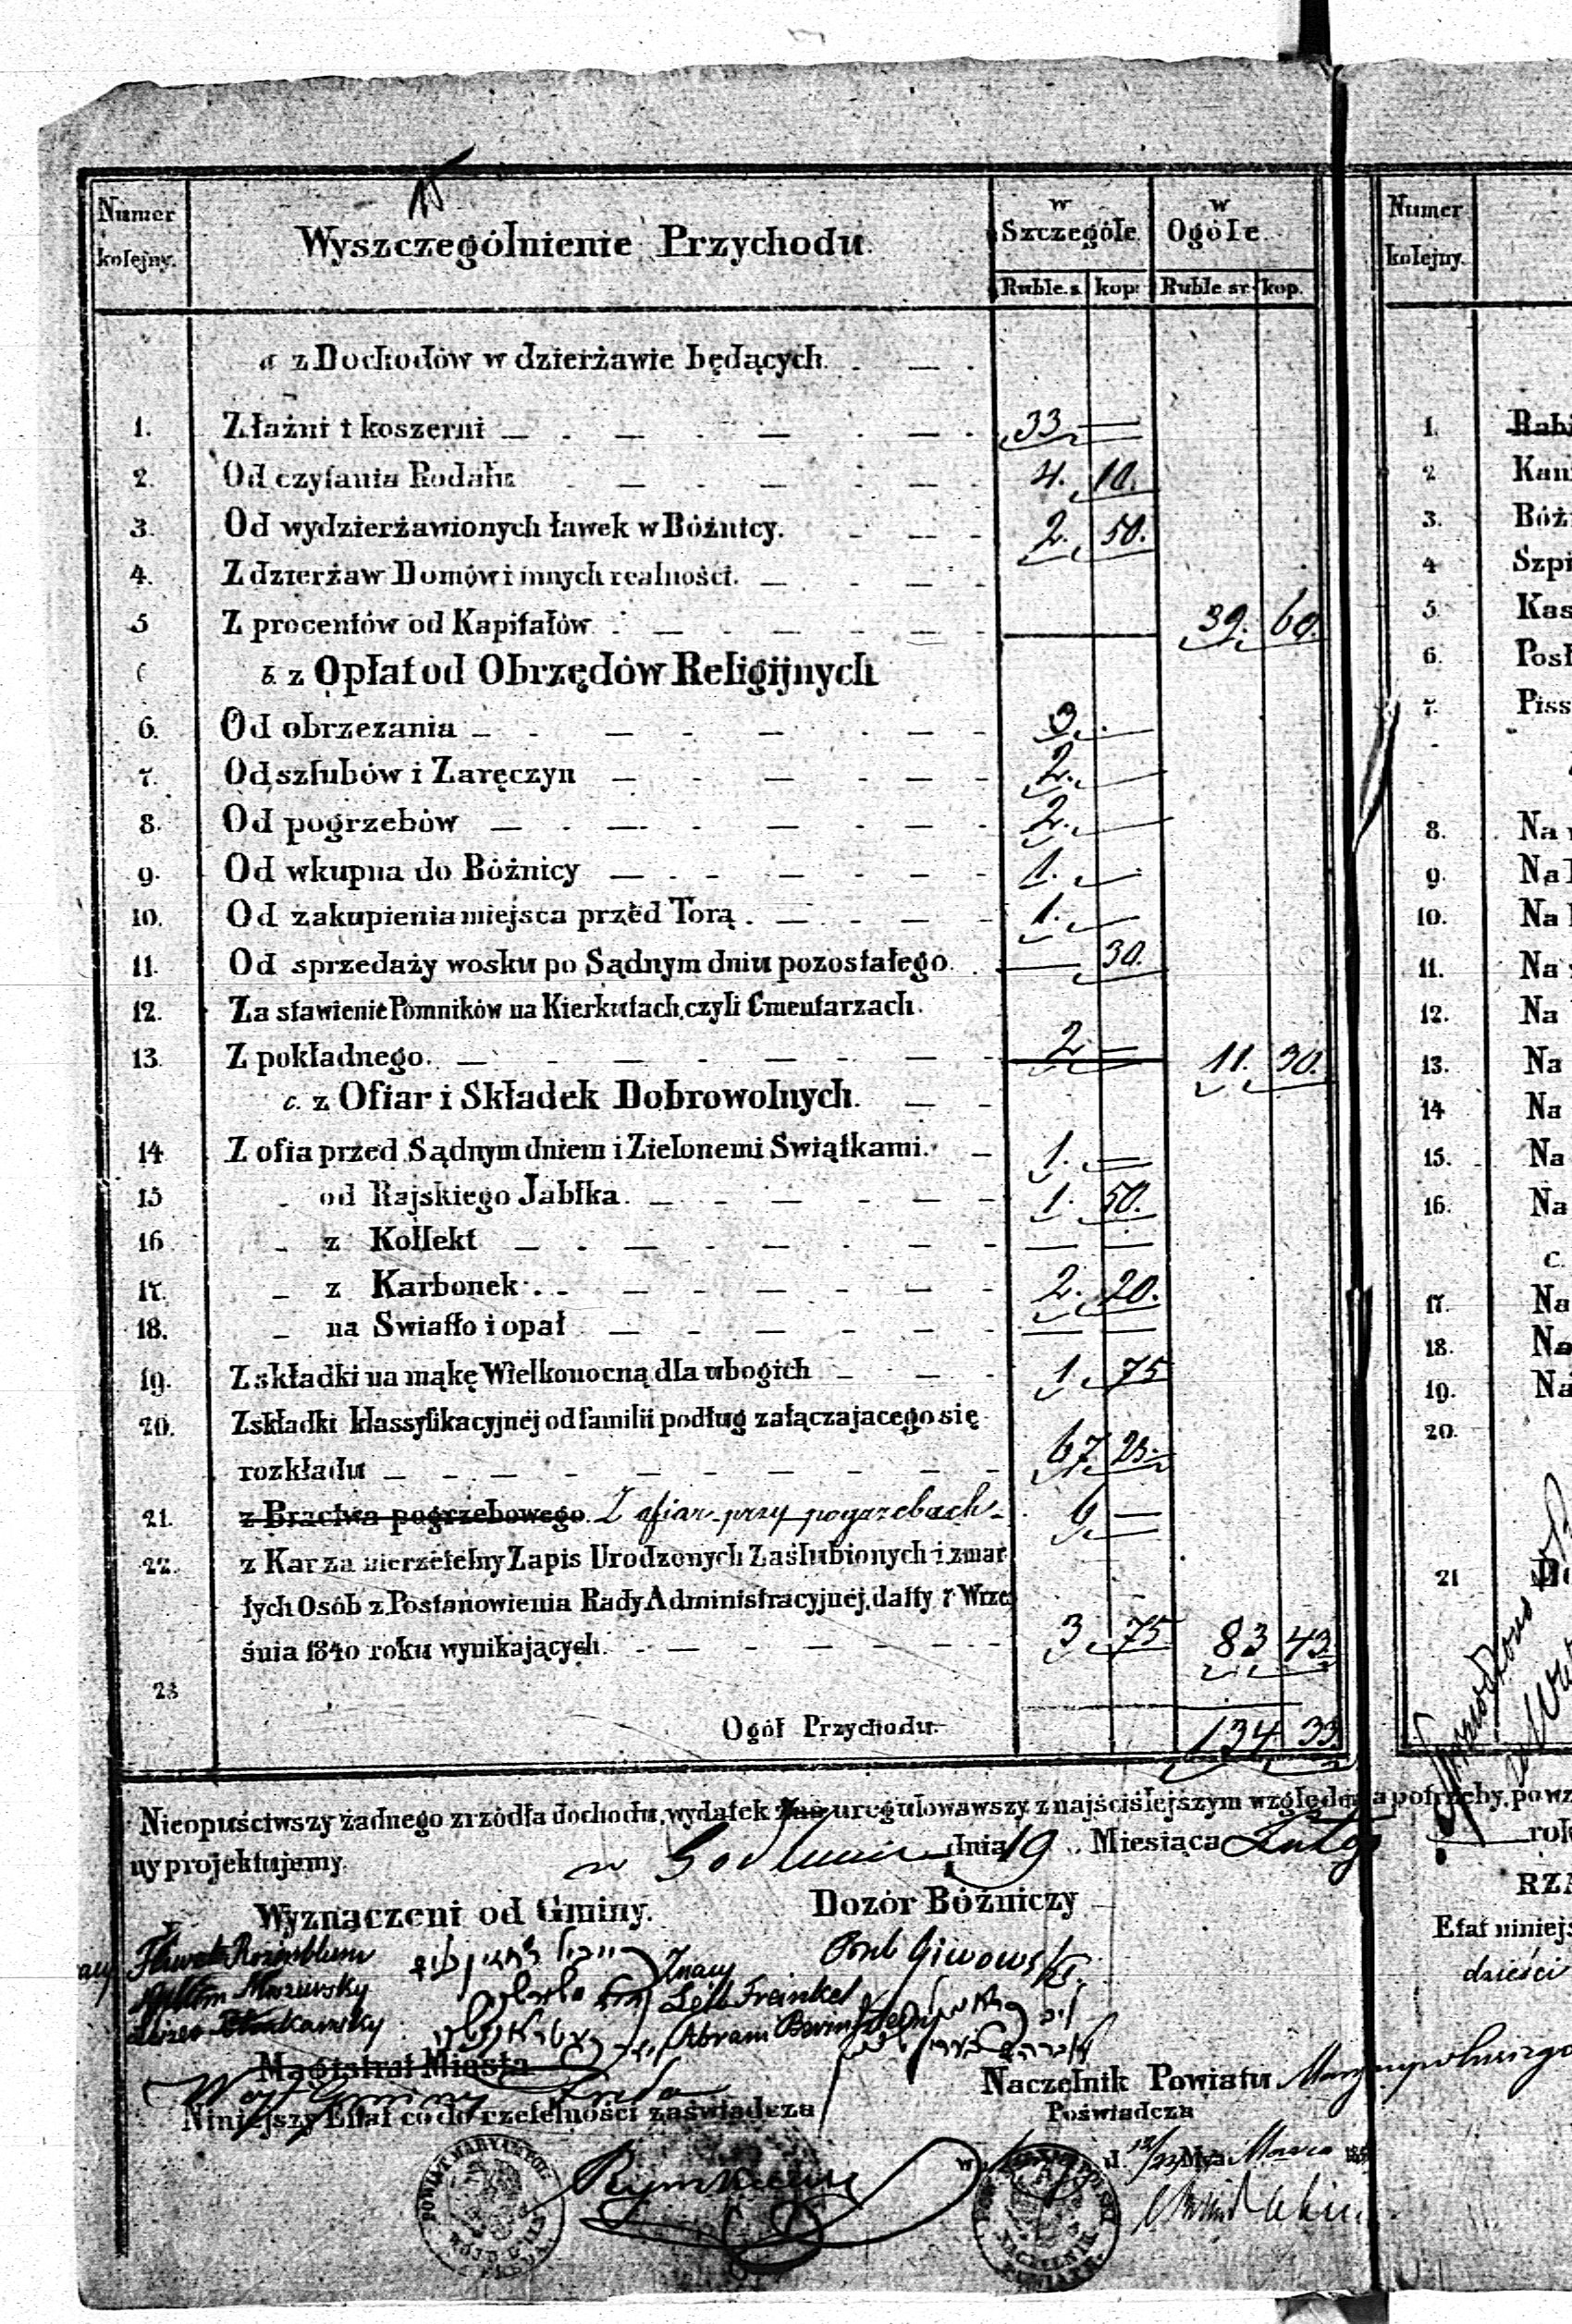 Numer kolejny.
Wyszczególnienie Przychodu
w Szczególe
w Ogóle
Ruble s. kop: Ruble sr. kop.
a z Dochodów w dzierżawie będących.
1. Z łaźni i koszerni 33 —
2. Od czytania Rodału 4. 10.
3. Od wydzierżawionych ławek w Bóżnicy. 2. 50.
4. Z dzierżaw Domów i innych realności.
5 Z procentów od Kapitałów 39. 60.
b. z Opłat od Obrzędów Religijnych
6. Od obrzezania 3. —
7. Od szlubów i Zaręczyn 2. —
8. Od pogrzebów 2. —
9. Od wkupna do Bóżnicy 1. —
10. Od zakupienia miejsca przed Torą. 1. —
11. Od sprzedaży wosku po Sądnym dniu pozostałego. — 30.
12. Za stawienie Pomników na Kierkutach, czyli Cmentarzach.
13. Z pokładnego. 2 — 11. 30.
c. z Ofiar i Składek Dobrowolnych.
14 Z ofia przed Sądnym dniem i Zielonemi Swiątkami. 1. —
15 od Rajskiego Jabłka. 1. 50.
16 z Kollekt — —
17. z Karbonek. 2. 20.
18. na Swiatło i opał — —
19. Z składki na mąkę Wielkonocną dla ubogich 1. 75
20. Z składki klassyfikacyjnéj od familii podług załączajacego się
rozkładu 67. 23.
21. z Bractwa pogrzebowego. Z ofiar przy pogrzebach 9. —
22. z Kar za nierzetelny Zapis Urodzonych Zaślubionych i zmar
łych Osób z Postanowienia Rady Administracyjnéj, datty 7 Wrze
śnia 1840 roku wynikających. 3. 75 83 43.
23
Ogół Przychodu. 134 33.
Nieopuściwszy żadnego zrzódła dochodu, wydatek zaś uregulowawszy z najściślejszym względem na potrzeby, powz
ny projektujemy.
dnia 19 Miesiąca Lutego
Wyznaczeni od Gminy.
Dozór Bóźniczy
Rozenblum
Znaczy
Mazursky
Leib Freinkel
Abram
Magistrat Miasta
Wójt Gminy Freda
Niniejszy Etat co do rzetelności zaświadcza
Naczelnik Powiatu Maryampolskiego
Poświadcza
d. 12/23 Mca Marca
Numer kolejny.
1. Rabi
2 Kan
3. Bóż
4 Szpi
5 Kas
6. Posł
7. Piss
8. Na
9. Na
10. Na
11. Na
12. Na
13. Na
14 Na
15. Na
16. Na
c.
17. Na
18. Na
19. Na
20.
21
rok
RZĄ
Etat niniejs
dzieści